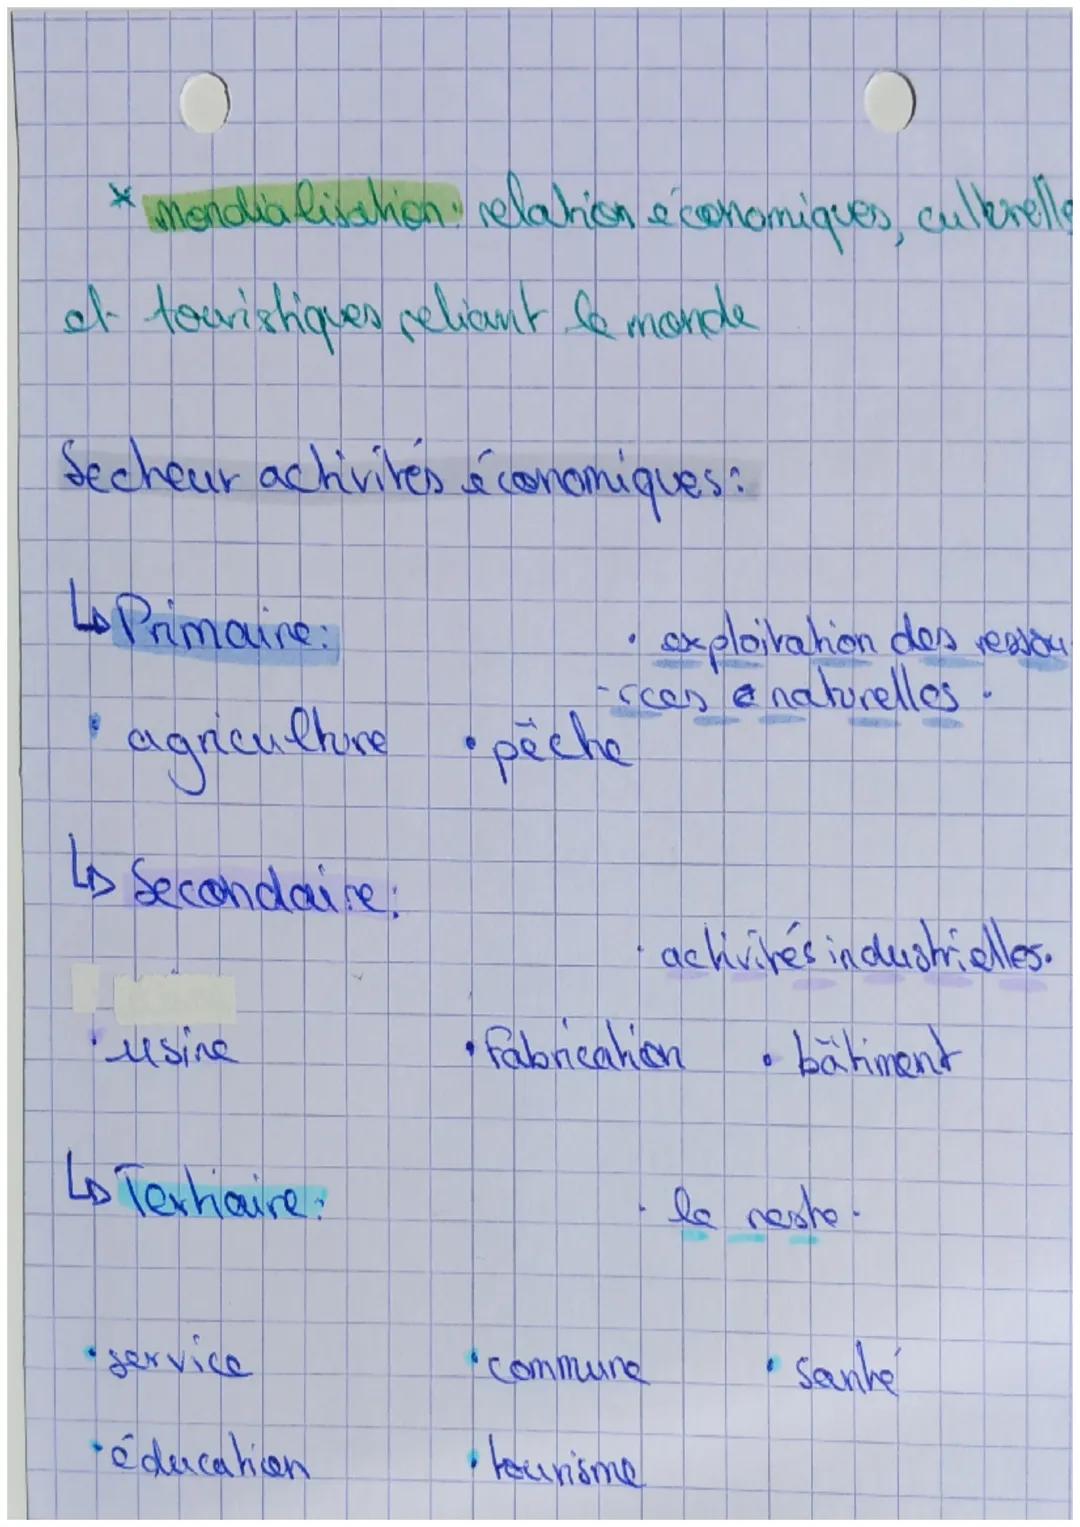 * mondialisation: relation économiques, culturelle
et touristiques reliant le monde
Secteur activités économiques:
↳ Primaire:
• exploitation des ressou
-rces e naturelles.
• agriculture • pêche
↳ Secondaire:
• activités industrielles.
• usine • fabrication • bâtiment
↳ Tertiaire:
• le reste.
• service • commune • santé
• éducation • tourisme